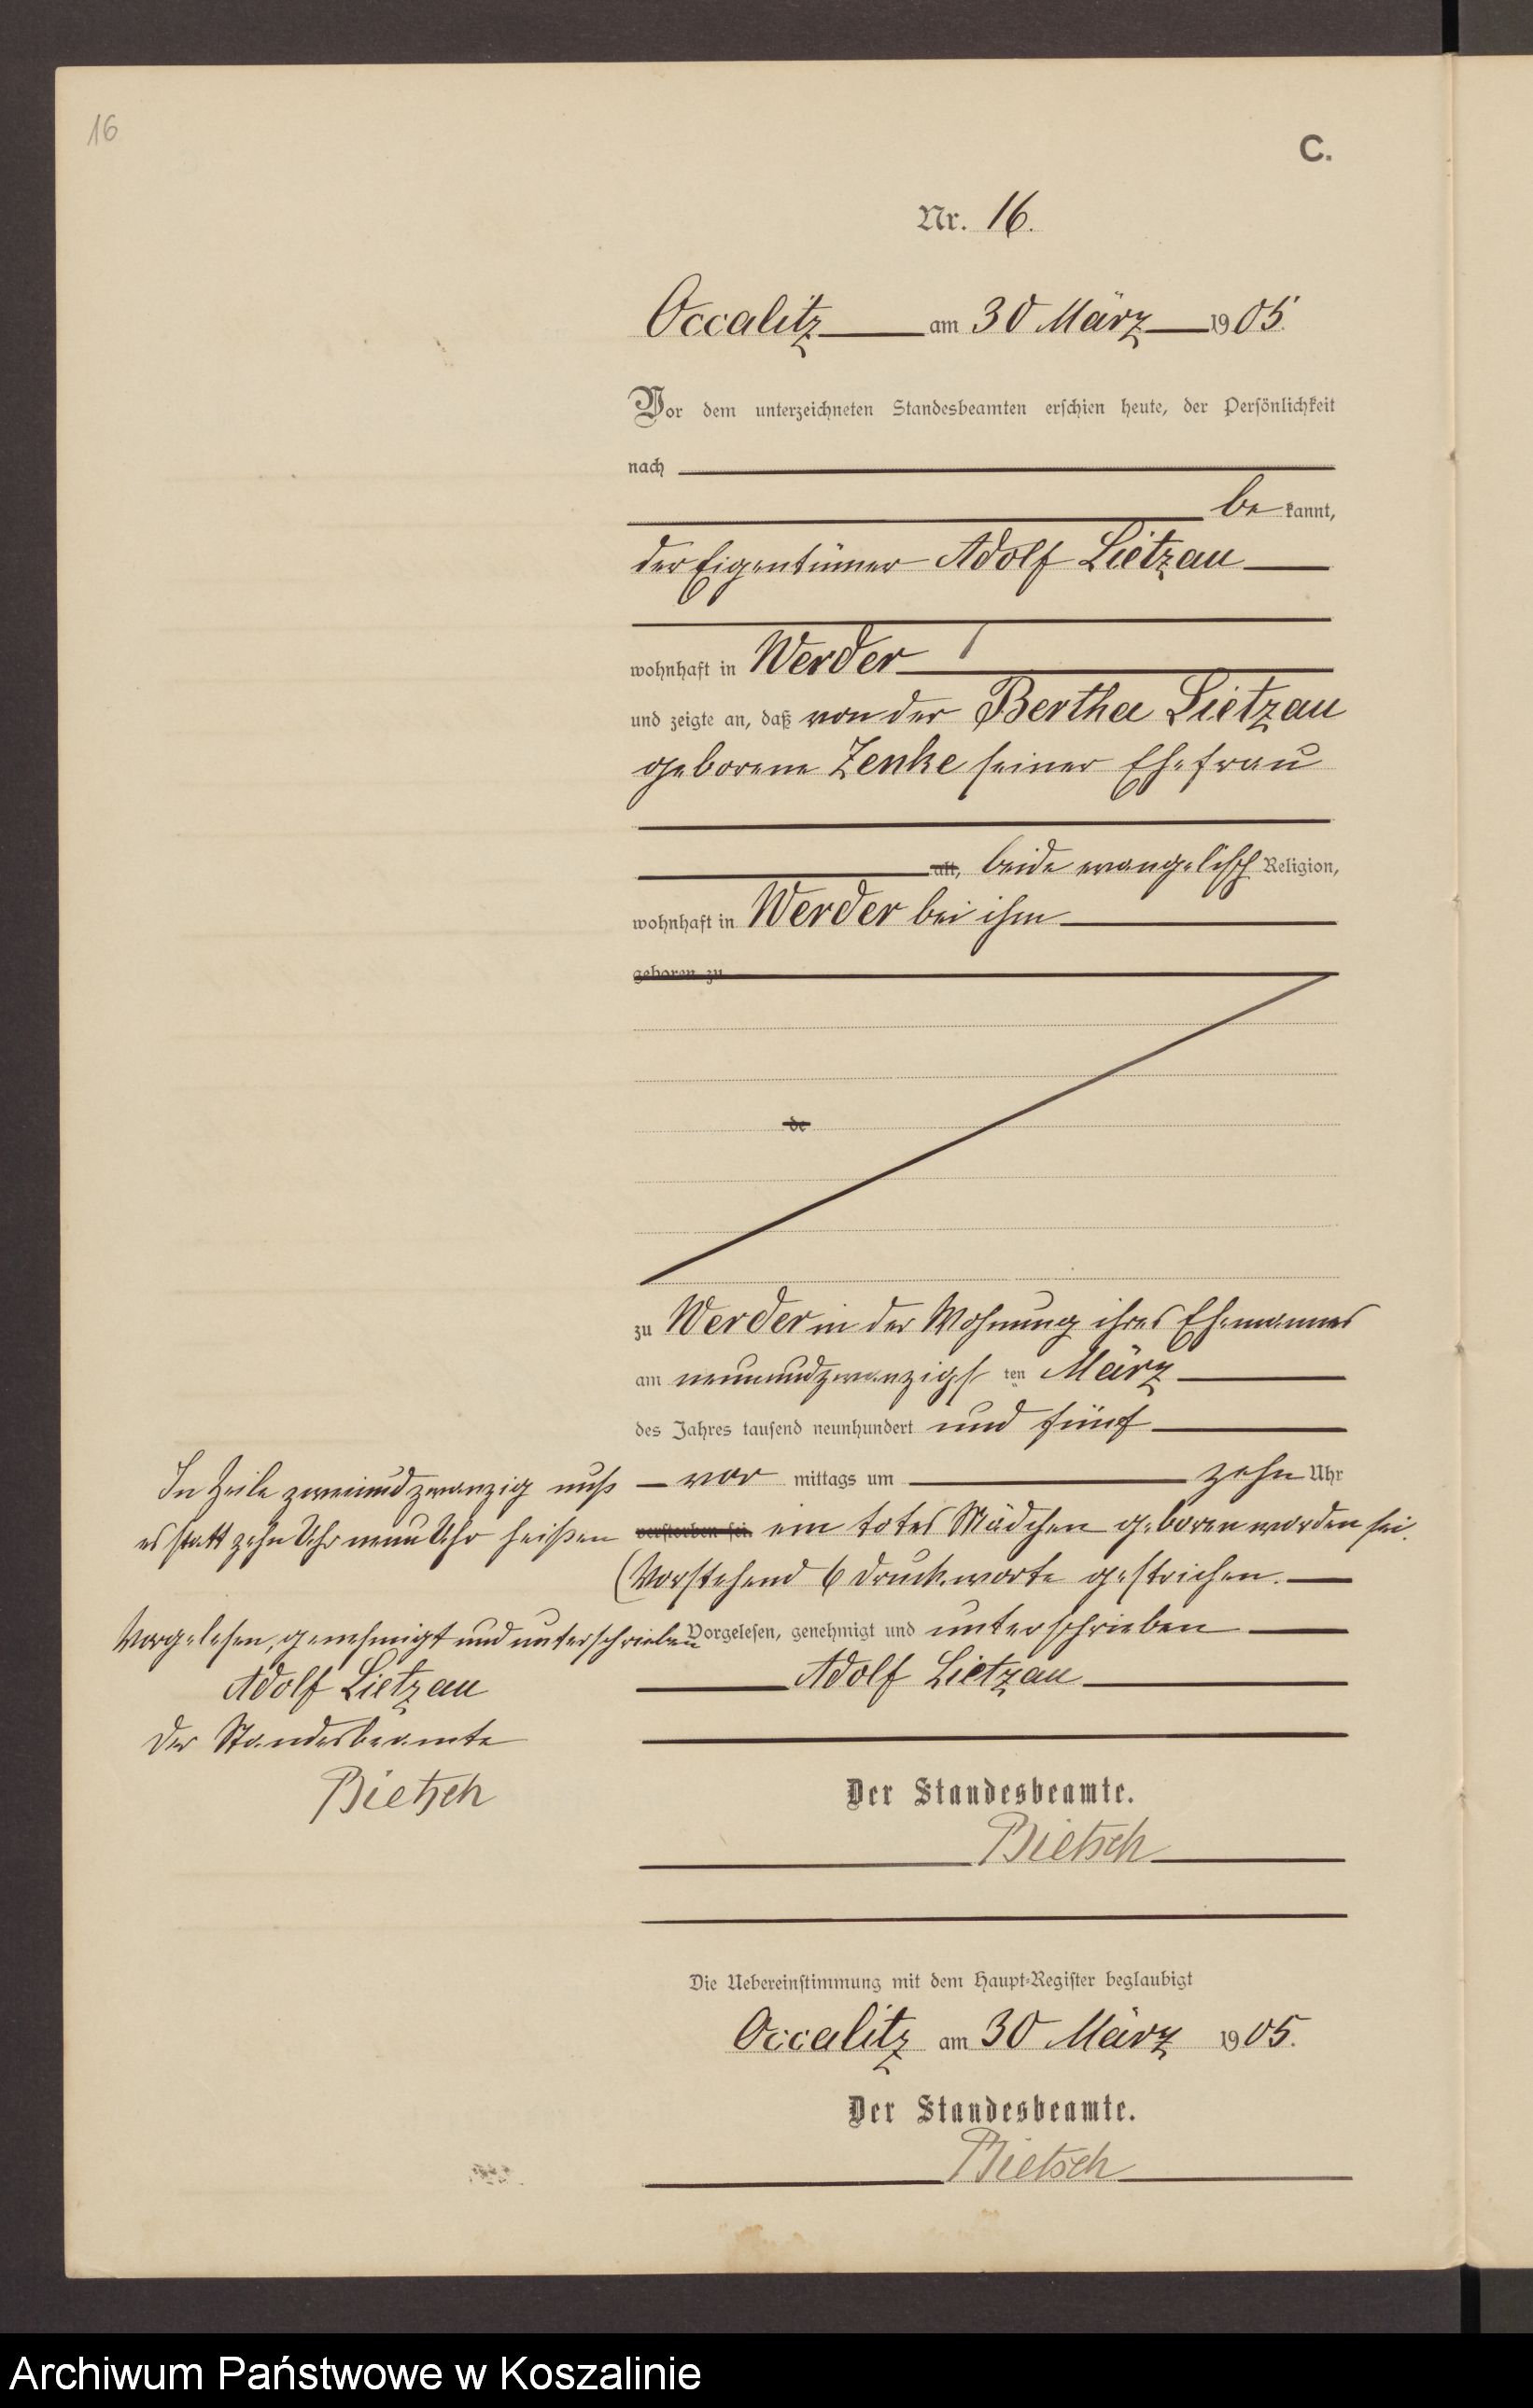 16
C.
Nr. 16.
Occalitz am 30 März 1905.
Vor dem unterzeichneten Standesbeamten erschien heute, der Persönlichkeit
nach
be kannt,
der Eigentümer Adolf Lietzau
wohnhaft in Werder
und zeigte an, daß von der Bertha Lietzau
geborene Zenke seiner Ehefrau
alt, beide evangelisch Religion,
wohnhaft in Werder bei ihm
geboren zu
de
zu Werder in der Wohnung ihres Ehemannes
am neunundzwanzigsten März
des Jahres tausend neunhundert und fünf
vor mittags um zehn Uhr
verstorben sei. ein totes Mädchen geboren worden sei.
(Vorstehend 6 Druckworte gestrichen.
Vorgelesen, genehmigt und unterschrieben
Adolf Lietzau
Der Standesbeamte.
Bietsch
In Zeile zweiundzwanzig muß
es statt zehn Uhr neun Uhr heißen
Vorgelesen, genehmigt und unterschrieben
Adolf Lietzau
Der Standesbeamte
Bietsch
Die Uebereinstimmung mit dem Haupt-Register beglaubigt
Occalitz am 30 März 1905.
Der Standesbeamte.
Bietsch
Archiwum Państwowe w Koszalinie